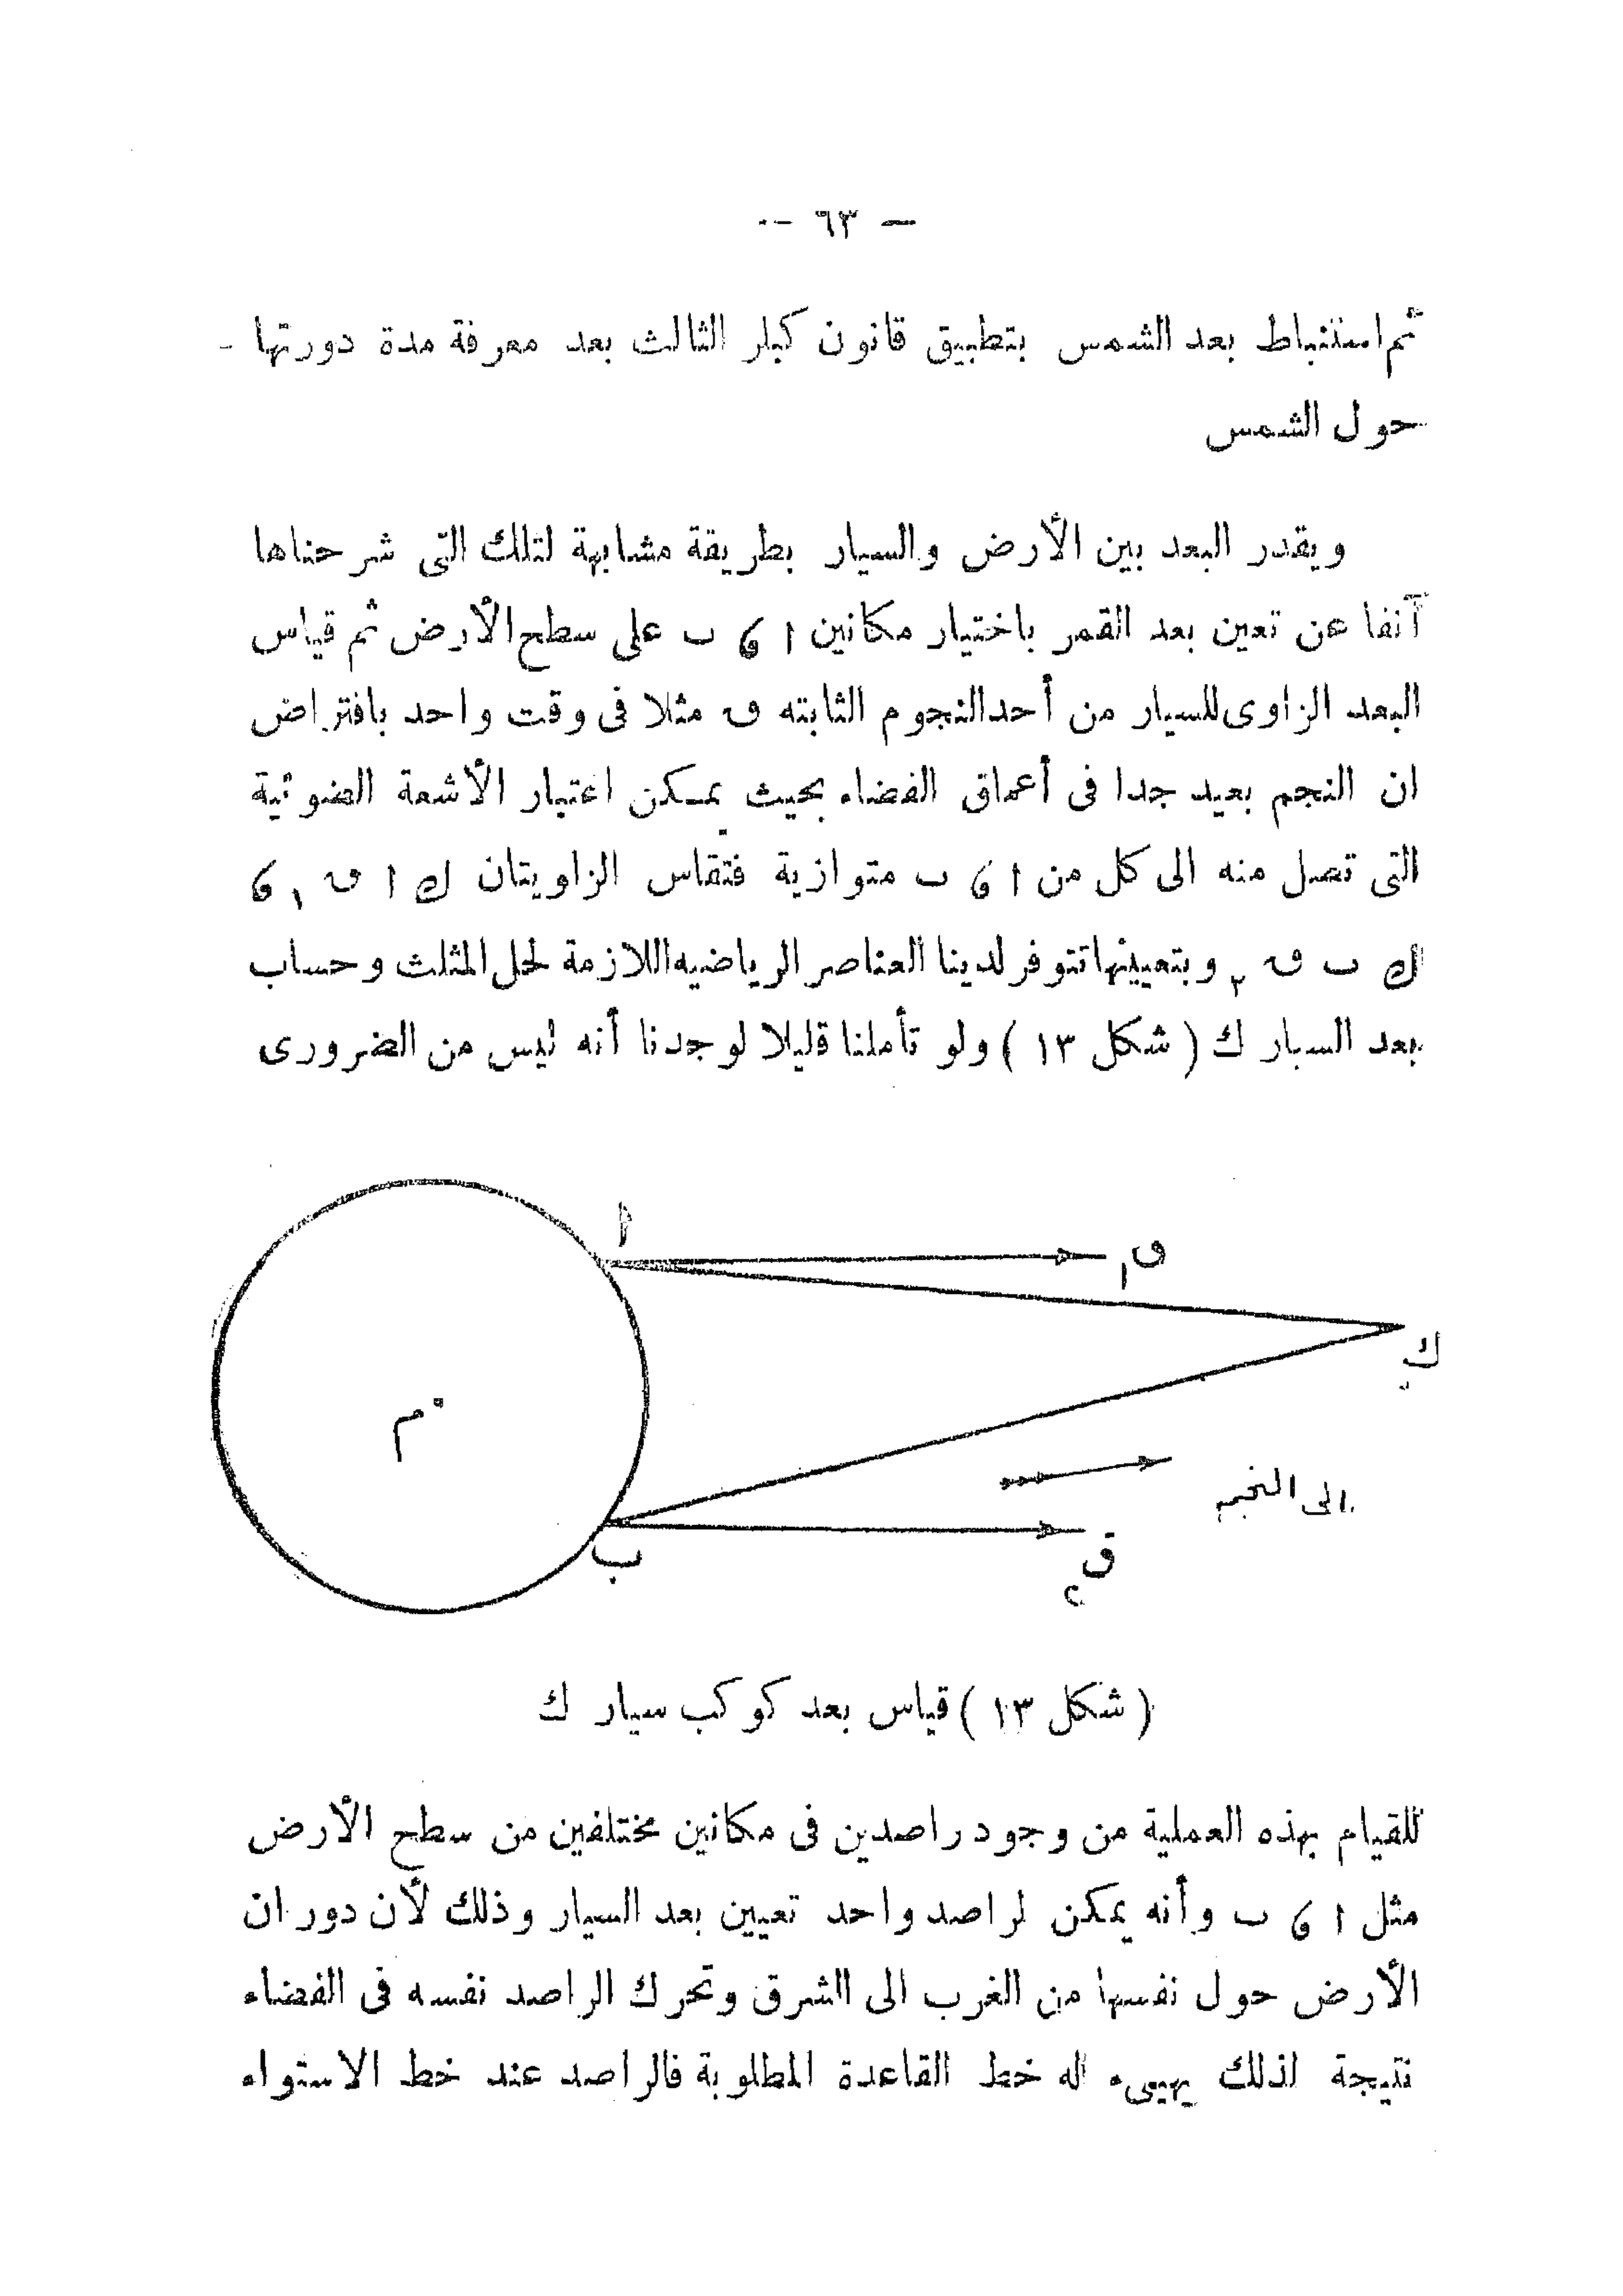 — ٦٣ —
ثم استنباط بعد الشمس بتطبيق قانون كبلر الثالث بعد معرفة مدة دورتها -
حول الشمس
ويقدر البعد بين الأرض والسيار بطريقة مشابهة لتلك التى شرحناها
آنفا عن تعين بعد القمر باختيار مكانين ا ، ب على سطح الأرض ثم قياس
البعد الزاوى للسيار من أحد النجوم الثابته ق مثلا فى وقت واحد بافتراض
ان النجم بعيد جدا فى أعماق الفضاء بحيث يمكن اعتبار الأشعة الضوئية
التى تصل منه الى كل من ا ، ب متوازية فتقاس الزاويتان ك ا ق١ ،
ك ب ق٢ وبتعيينها تتوفر لدينا العناصر الرياضيه اللازمة لحل المثلث وحساب
بعد السيار ك ( شكل ١٣ ) ولو تأملنا قليلا لوجدنا أنه ليس من الضرورى
ا
ق١
ك
م
الى النجم
ب
ق٢
( شكل ١٣ ) قياس بعد كوكب سيار ك
للقيام بهذه العملية من وجود راصدين فى مكانين مختلفين من سطح الأرض
مثل ا ، ب وأنه يمكن لراصد واحد تعيين بعد السيار وذلك لأن دوران
الأرض حول نفسها من الغرب الى الشرق وتحرك الراصد نفسه فى الفضاء
نتيجة لذلك يهيىء له خط القاعدة المطلوبة فالراصد عند خط الاستواء